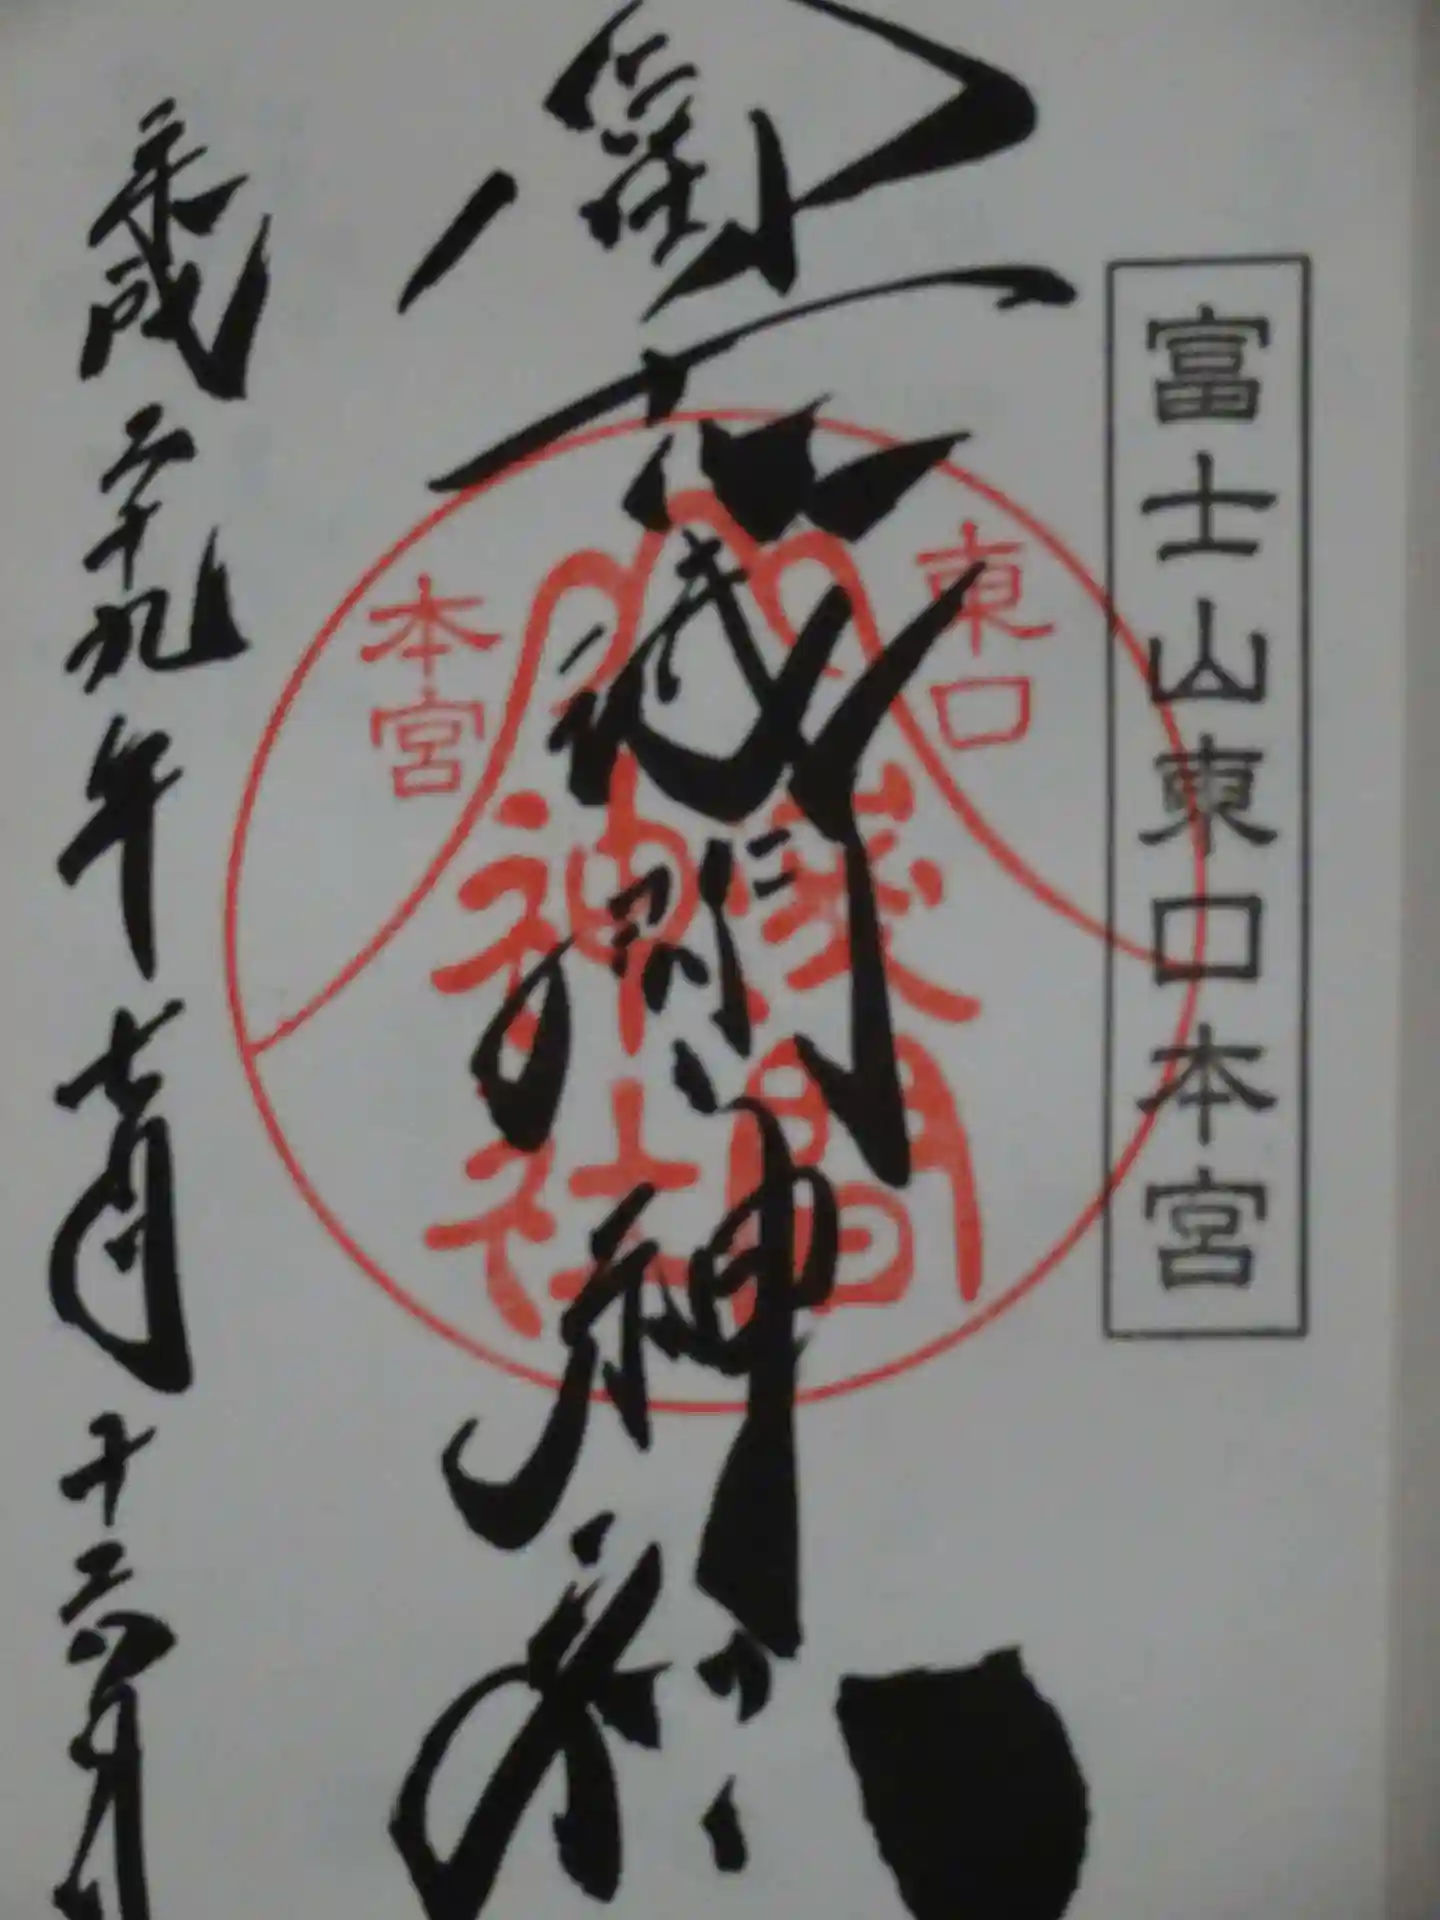 富士山東口本宮
冨士浅間神社
東口
本宮
淺間
神社
平成二十九年七月十六日